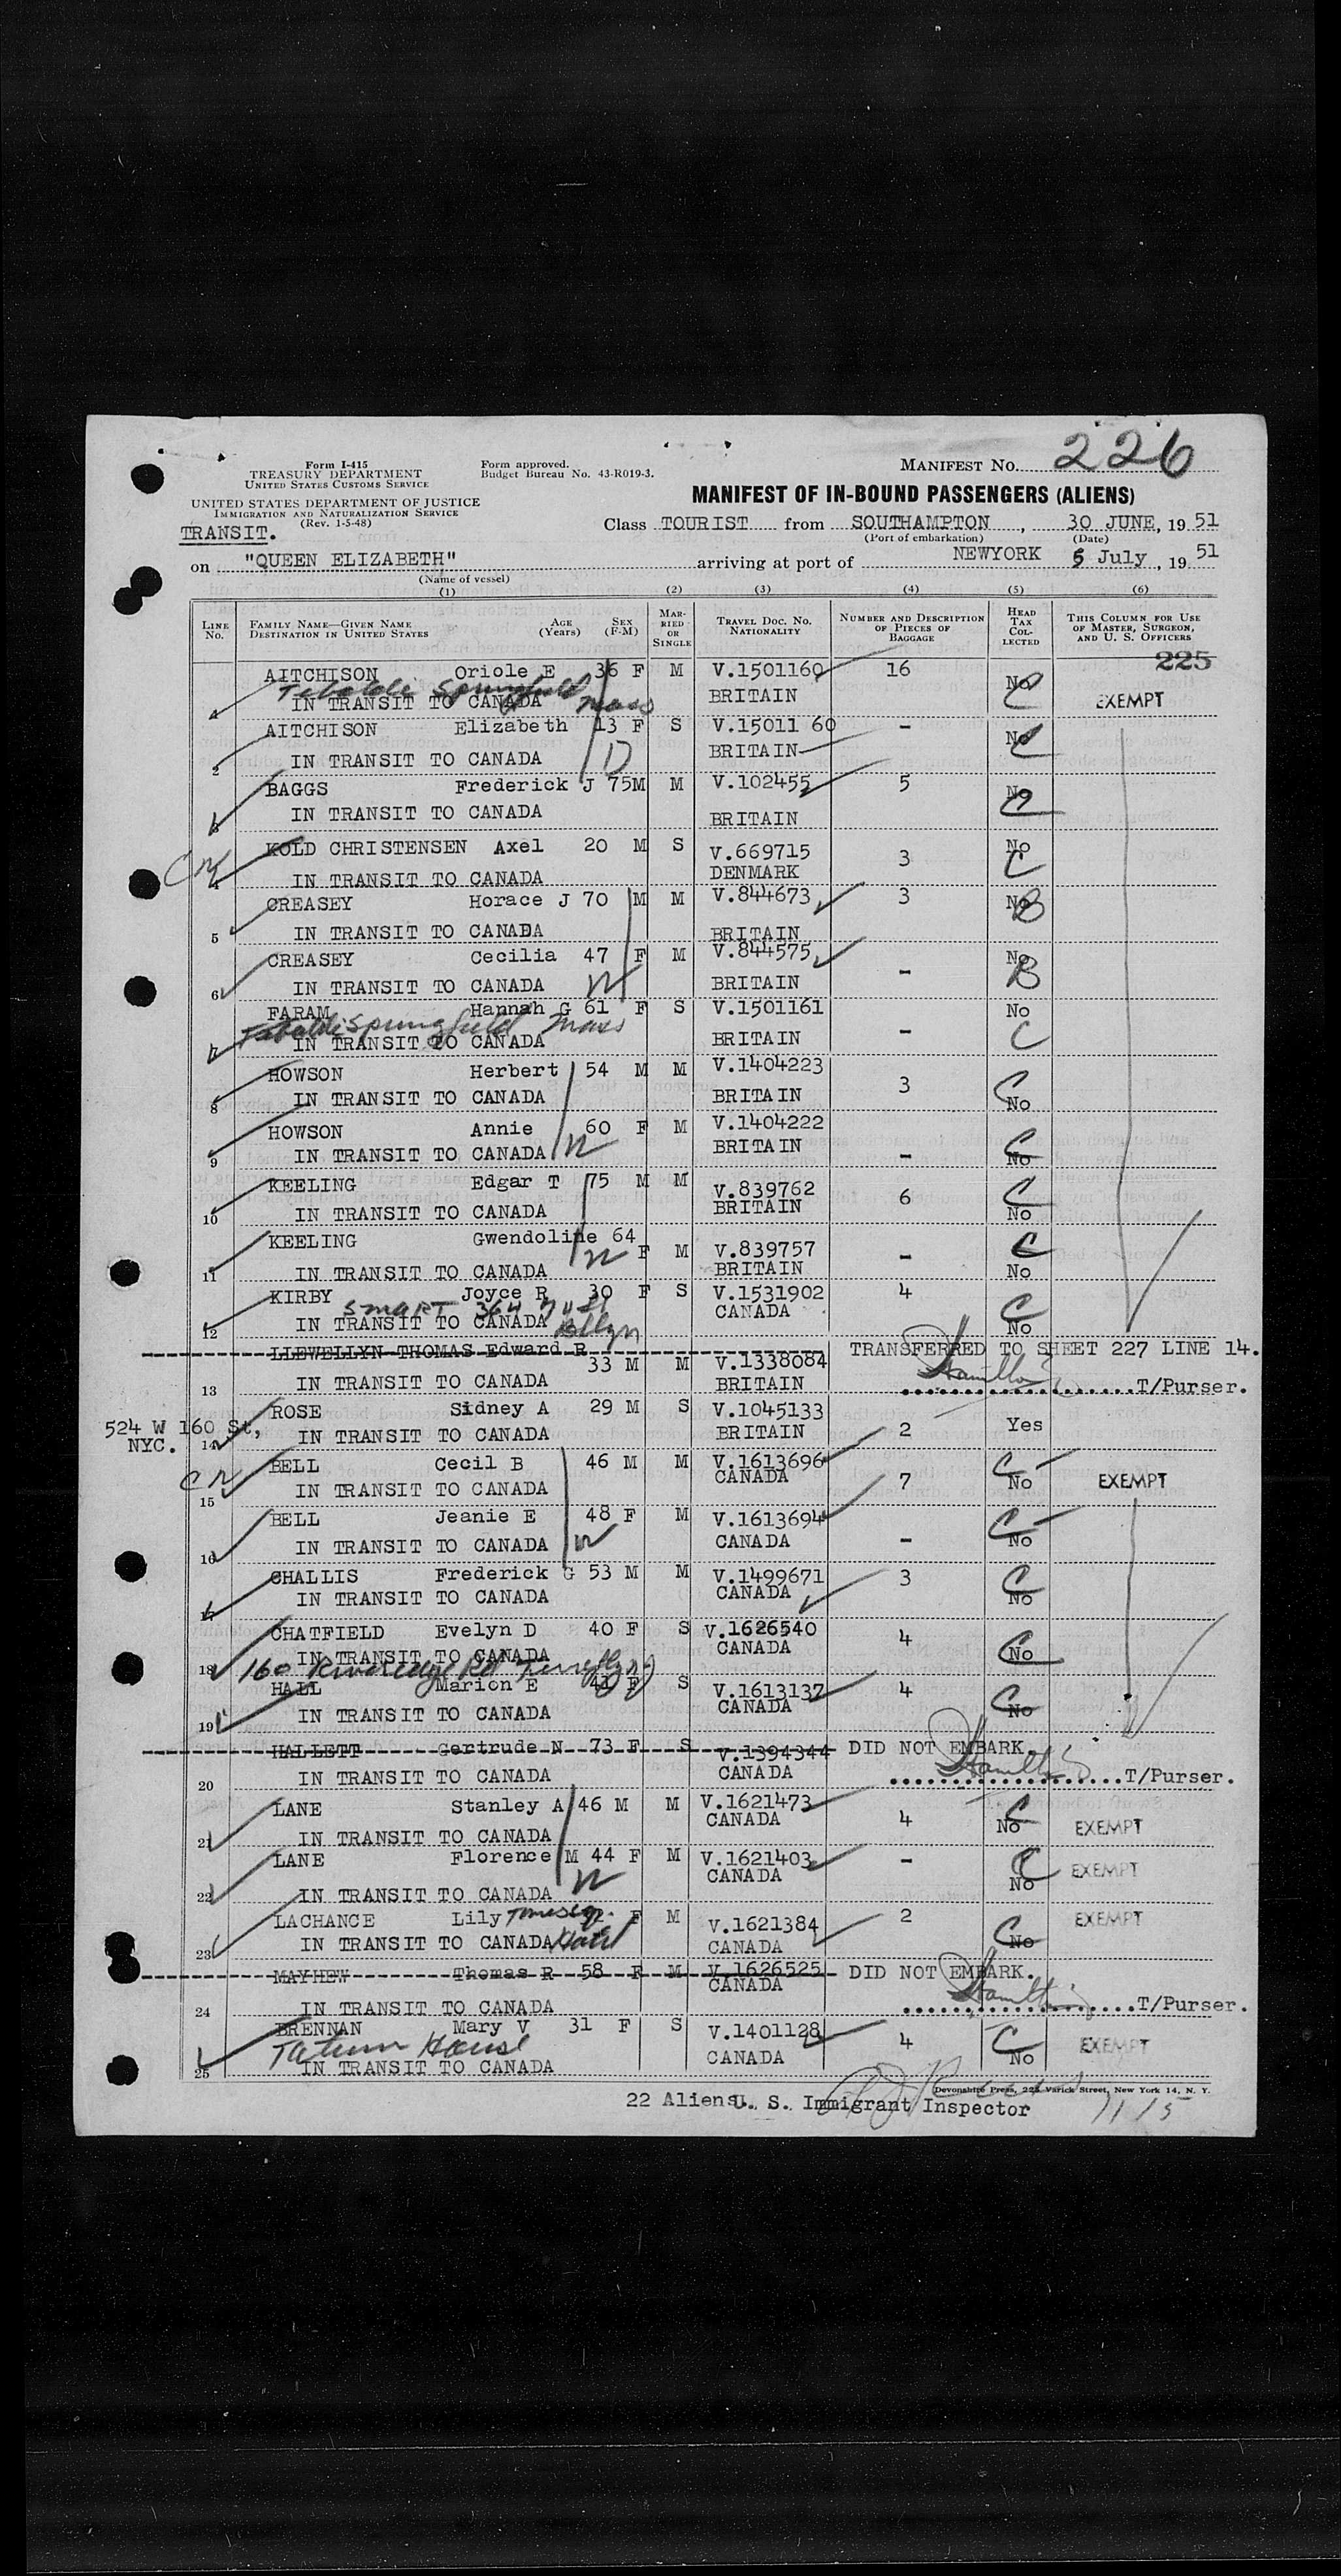 Form I-415
TREASURY DEPARTMENT
UNITED STATES CUSTOMS SERVICE
Form approved.
Budget Bureau No. 43-R019-3.
MANIFEST No. 226
UNITED STATES DEPARTMENT OF JUSTICE
IMMIGRATION AND NATURALIZATION SERVICE
(Rev. 1-5-48)
MANIFEST OF IN-BOUND PASSENGERS (ALIENS)
TRANSIT.
Class TOURIST from SOUTHAMPTON, 30 JUNE, 19 51
(Port of embarkation) (Date)
on "QUEEN ELIZABETH" arriving at port of NEWYORK 5 July, 19 51
(Name of vessel)
(1) (2) (3) (4) (5) (6)
LINE No. FAMILY NAME—GIVEN NAME DESTINATION IN UNITED STATES AGE (Years) SEX (F-M) MARRIED OR SINGLE TRAVEL DOC. NO. NATIONALITY NUMBER AND DESCRIPTION OF PIECES OF BAGGAGE HEAD TAX COLLECTED THIS COLUMN FOR USE OF MASTER, SURGEON, AND U. S. OFFICERS
225
AITCHISON Oriole E 36 F M V.1501160 16 No C
Springfield Mass
IN TRANSIT TO CANADA BRITAIN EXEMPT
AITCHISON Elizabeth 13 F S V.15011 60 - No C
2 IN TRANSIT TO CANADA D BRITAIN
BAGGS Frederick J 75M M V.102455 5 No
3 IN TRANSIT TO CANADA BRITAIN
KOLD CHRISTENSEN Axel 20 M S V.669715 3 No C
4 IN TRANSIT TO CANADA DENMARK
CREASEY Horace J 70 M M V.844673 3 No B
5 IN TRANSIT TO CANADA BRITAIN
CREASEY Cecilia 47 F M V.844575 - No B
6 IN TRANSIT TO CANADA BRITAIN
FARAM Hannah G 61 F S V.1501161 - No C
Springfield Mass
7 IN TRANSIT TO CANADA BRITAIN
HOWSON Herbert 54 M M V.1404223 3 C No
8 IN TRANSIT TO CANADA BRITAIN
HOWSON Annie 60 F M V.1404222 - C No
9 IN TRANSIT TO CANADA BRITAIN
KEELING Edgar T 75 M M V.839762 6 C No
10 IN TRANSIT TO CANADA BRITAIN
KEELING Gwendoline 64 F M V.839757 - C No
11 IN TRANSIT TO CANADA BRITAIN
KIRBY Joyce R 30 F S V.1531902 4 C No
SMART 364
12 IN TRANSIT TO CANADA CANADA
LLEWELLYN THOMAS Edward R 33 M M V.1338084 TRANSFERRED TO SHEET 227 LINE 14.
13 IN TRANSIT TO CANADA BRITAIN Hamilton T/Purser.
ROSE Sidney A 29 M S V.1045133 2 Yes
524 W 160 St, NYC.
14 IN TRANSIT TO CANADA BRITAIN
BELL Cecil B 46 M M V.1613696 7 C No EXEMPT
15 IN TRANSIT TO CANADA CANADA
BELL Jeanie E 48 F M V.1613694 - C No
16 IN TRANSIT TO CANADA CANADA
CHALLIS Frederick G 53 M M V.1499671 3 C No
IN TRANSIT TO CANADA CANADA
CHATFIELD Evelyn D 40 F S V.1626540 4 C No
18 IN TRANSIT TO CANADA CANADA
160 Riveredge Rd
HALL Marion E 41 F S V.1613137 4 C No
19 IN TRANSIT TO CANADA CANADA
HALLETT Gertrude N 73 F S V.1394344 DID NOT EMBARK.
20 IN TRANSIT TO CANADA CANADA Hamilton T/Purser.
LANE Stanley A 46 M M V.1621473 4 C No EXEMPT
21 IN TRANSIT TO CANADA CANADA
LANE Florence M 44 F M V.1621403 - C No EXEMPT
22 IN TRANSIT TO CANADA CANADA
LACHANCE Lily F M V.1621384 2 C No EXEMPT
23 IN TRANSIT TO CANADA Hotel CANADA
MAYHEW Thomas R 58 F M V.1626525 DID NOT EMBARK.
24 IN TRANSIT TO CANADA CANADA Hamilton T/Purser.
BRENNAN Mary V 31 F S V.1401128 4 C No EXEMPT
Tatum House
25 IN TRANSIT TO CANADA CANADA
Devonshire Press, 225 Varick Street, New York 14, N. Y.
22 Aliens. U. S. Immigrant Inspector